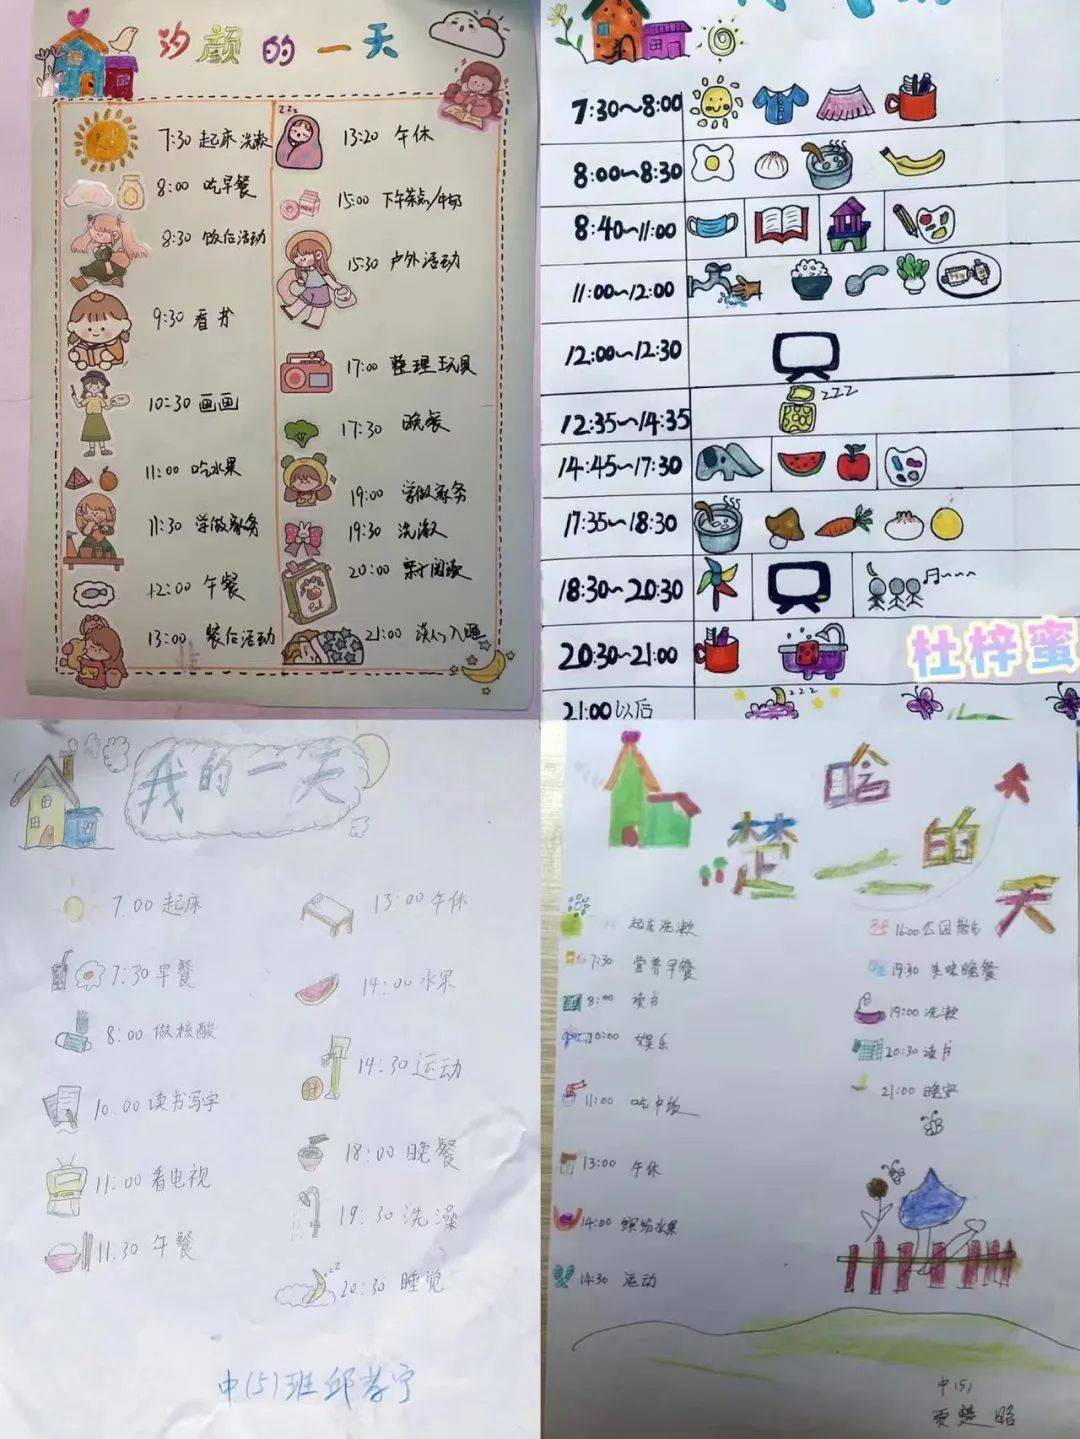 汐颜的一天
7:30 起床 洗漱
8:00 吃早餐
8:30 饭后活动
9:30 看书
10:30 画画
11:00 吃水果
11:30 学做家务
12:00 午餐
13:00 餐后活动
13:20 午休
15:00 下午茶点/牛奶
15:30 户外活动
17:00 整理玩具
17:30 晚餐
19:00 学做家务
19:30 洗漱
20:00 亲子阅读
21:00 准备入睡
7:30~8:00
8:00~8:30
8:40~11:00
11:00~12:00
12:00~12:30
12:35~14:35
zzz
14:45~17:30
17:35~18:30
18:30~20:30
20:30~21:00
杜梓蜜
21:00以后
zzz
我的一天
7.00 起床
7:30 早餐
8:00 做核酸
10.00 读书写字
11:00 看电视
11.30 午餐
13:00 午休
14:00 水果
14:30 运动
18:00 晚餐
19.30 洗澡
20:30 睡觉
中(5)班邱孝宁
楚晗的一天
起床洗漱
7:30 营养早餐
8:00 读书
10:00 娱乐
11:00 吃中饭
13:00 午休
14:00 缤纷水果
14:30 运动
16:00 公园散步
19:00 洗漱
20:30 读书
21:00 晚安
中(5)